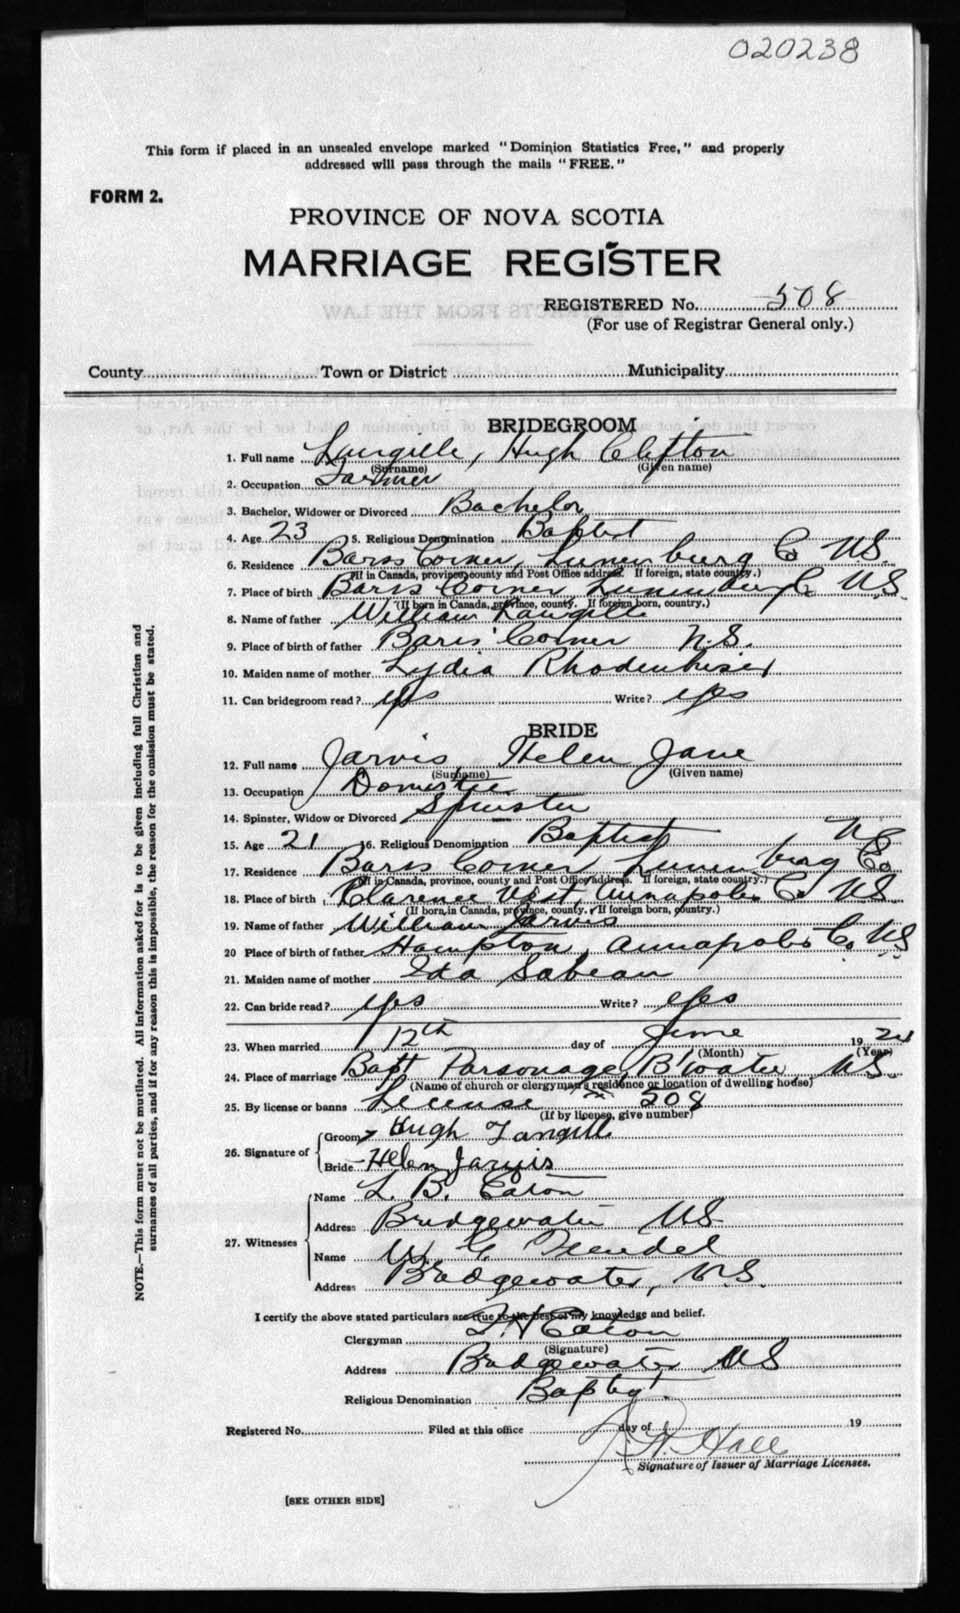 020238
This form if placed in an unsealed envelope marked "Dominion Statistics Free," and properly
addressed will pass through the mails "FREE."
FORM 2.
PROVINCE OF NOVA SCOTIA
MARRIAGE REGISTER
REGISTERED No. 508
(For use of Registrar General only.)
County Town or District Municipality
BRIDEGROOM
1. Full name Langille, Hugh Clifton
(Surname) (Given name)
2. Occupation Farmer
3. Bachelor, Widower or Divorced Bachelor
4. Age 23 5. Religious Denomination Baptist
6. Residence Barss Corner, Lunenburg Co N.S.
(If in Canada, province, county and Post Office address. If foreign, state country.)
7. Place of birth Barss Corner Lunenburg Co N.S.
(If born in Canada, province, county. If foreign born, country.)
8. Name of father William Langille
9. Place of birth of father Barss Corner N.S.
10. Maiden name of mother Lydia Rhodenhiser
11. Can bridegroom read? yes Write? yes
BRIDE
12. Full name Jarvis Helen Jane
(Surname) (Given name)
13. Occupation Domestic
14. Spinster, Widow or Divorced Spinster
15. Age 21 16. Religious Denomination Baptist
17. Residence Barss Corner Lunenburg Co NS
(If in Canada, province, county and Post Office address. If foreign, state country.)
18. Place of birth Clarence West, Annapolis Co NS
(If born in Canada, province, county. If foreign born, country.)
19. Name of father William Jarvis
20 Place of birth of father Hampton, Annapolis Co. NS
21. Maiden name of mother Ida Sabean
22. Can bride read? yes Write? yes
23. When married 12th day of June 19 24
(Month) (Year)
24. Place of marriage Bapt Parsonage, B'water, N.S.
(Name of church or clergyman's residence or location of dwelling house)
25. By license or banns License 508
(If by license, give number)
26. Signature of Groom Hugh Langille
Bride Helen Jarvis
27. Witnesses Name L. B. Eaton
Address Bridgewater NS
Name
Address Bridgewater, N.S.
I certify the above stated particulars are true to the best of my knowledge and belief.
Clergyman Eaton
(Signature)
Address Bridgewater NS
Religious Denomination Baptist
Registered No. Filed at this office day of 19
Hall
Signature of Issuer of Marriage Licenses.
[SEE OTHER SIDE]
NOTE.—This form must not be mutilated. All information asked for is to be given including full Christian and
surnames of all parties, and if for any reason this is impossible, the reason for the omission must be stated.